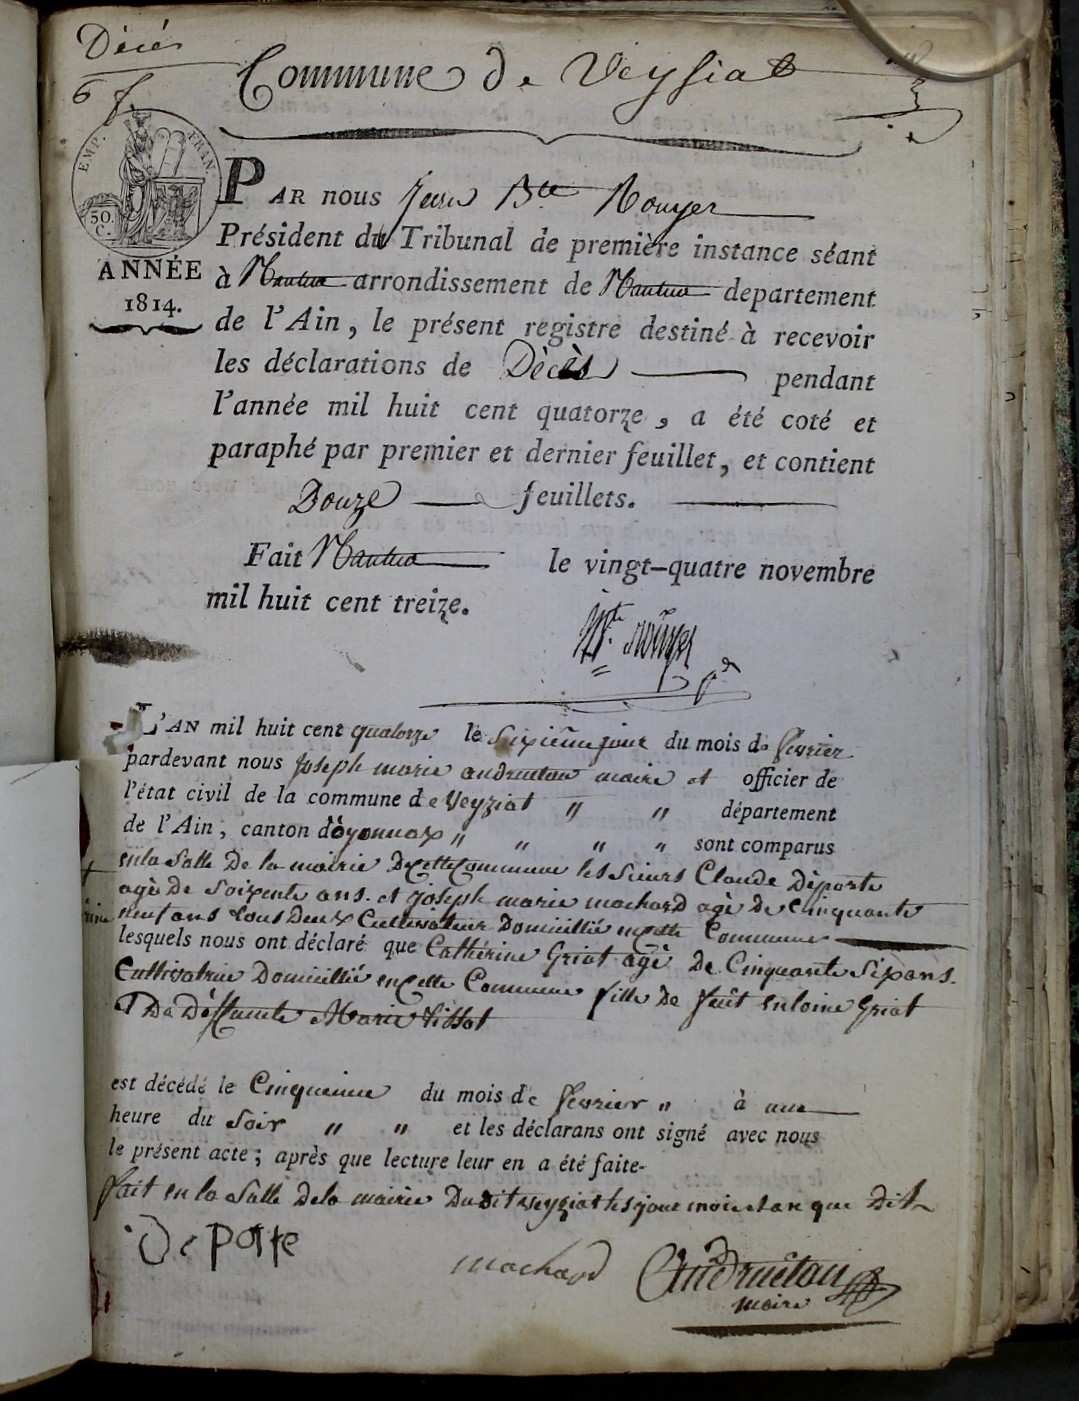 Décés
6 f.
Commune de Veysiat
EMP. FRAN.
50.
C.
ANNÉE
1814.
PAR NOUS Jean Bte Rouyer
Président du Tribunal de première instance séant
à Nantua arrondissement de Nantua departement
de l'Ain, le présent registre destiné à recevoir
les déclarations de Décès pendant
l'année mil huit cent quatorze, a été coté et
paraphé par premier et dernier feuillet, et contient
Douze feuillets.
Fait Nantua le vingt-quatre novembre
mil huit cent treize.
Bte. Rouyer
pdt
L'AN mil huit cent quatorze le sixième jour du mois de février
pardevant nous joseph marie andruetan maire et officier de
l'état civil de la commune de Veyziat " " département
de l'Ain, canton d'oyonnax " " " " sont comparus
en la Salle De la mairie De cette Commune les Sieurs Claude Déporte
agé De Soixente ans. et joseph marie mochard agé De Cinquante
neuf ans tous Deux Cultivateur Domicillié en cette Commune
lesquels nous ont déclaré que Cathérine Griot agé De Cinquante Six ans.
Cultivatrice Domicillié en cette Commune fille De feût entoine Griot
et De Déffunte Marie Vissot
est décédé le Cinquieme du mois de février " à une
heure du Soir " " et les déclarans ont signé avec nous
le présent acte; après que lecture leur en a été faite-
fait en la Salle De la mairie Du dit veyziat les jour mois et an que Dit
De porte
mochard Andruetan
maire